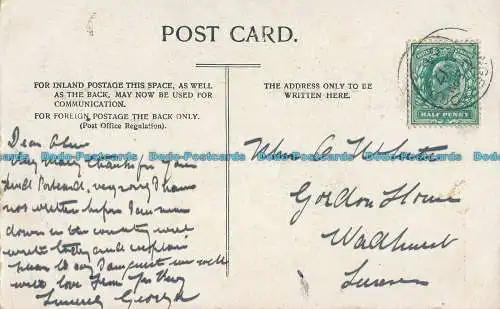 POST CARD.
FOR INLAND POSTAGE THIS SPACE, AS WELL
AS THE BACK, MAY NOW BE USED FOR
COMMUNICATION.
FOR FOREIGN POSTAGE THE BACK ONLY.
(Post Office Regulation.)
THE ADDRESS ONLY TO BE
WRITTEN HERE.
HALF PENNY
Dodo-Postcards Dodo-Postcards Dodo-Postcards Dodo-Postcards Dodo-Postcards
Dear
very many thanks for
Postcard, very sorry I have
not written before I am now
down in the country will
write today and explain
am quite well
with love from
Sincerely George
Gordon House
Wadhurst
Sussex